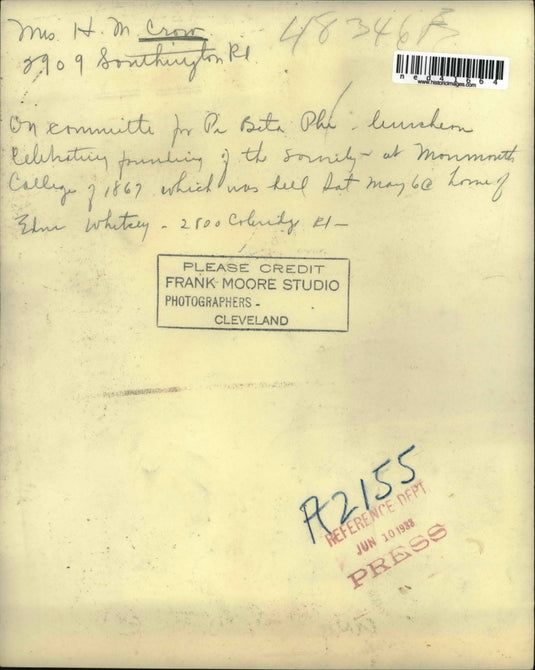 Mrs. H. M Crow
48346B
2909 Southington Rd.
ned41664
www.historicimages.com
On committe for Pi Beta Phi - luncheon
Celebrating founding of the Society - at Monmouth
College of 1867 which was held Sat May 6 @ home of
Whitsey - 2800 Coleridge Rd -
PLEASE CREDIT
FRANK MOORE STUDIO
PHOTOGRAPHERS -
CLEVELAND
A2155
REFERENCE DEPT
JUN 10 1933
PRESS